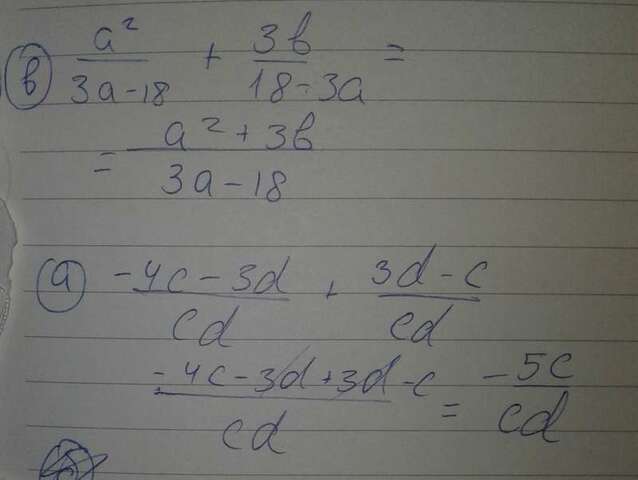 в) a²/(3a-18) + 3b/(18-3a) =
= (a² + 3b)/(3a-18)
а) (-4c-3d)/cd + (3d-c)/cd
(-4c-3d+3d-c)/cd = -5c/cd